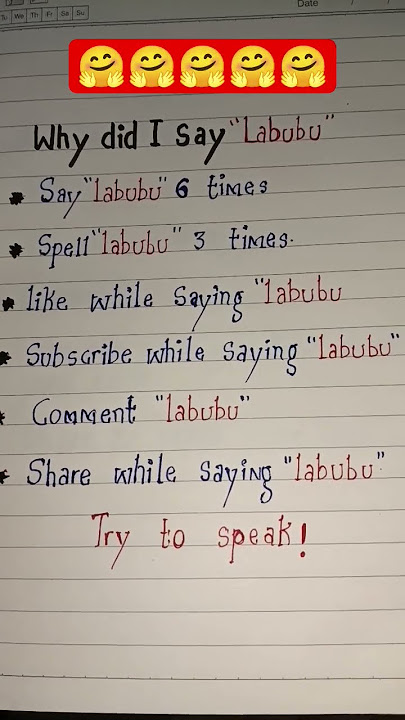 Date
Tu We Th Fr Sa Su
Why did I Say "Labubu"
Say "labubu" 6 times
Spell "labubu" 3 times.
like while Saying "labubu
Subscribe while saying "labubu"
Comment "labubu"
Share while saying "labubu"
Try to speak!